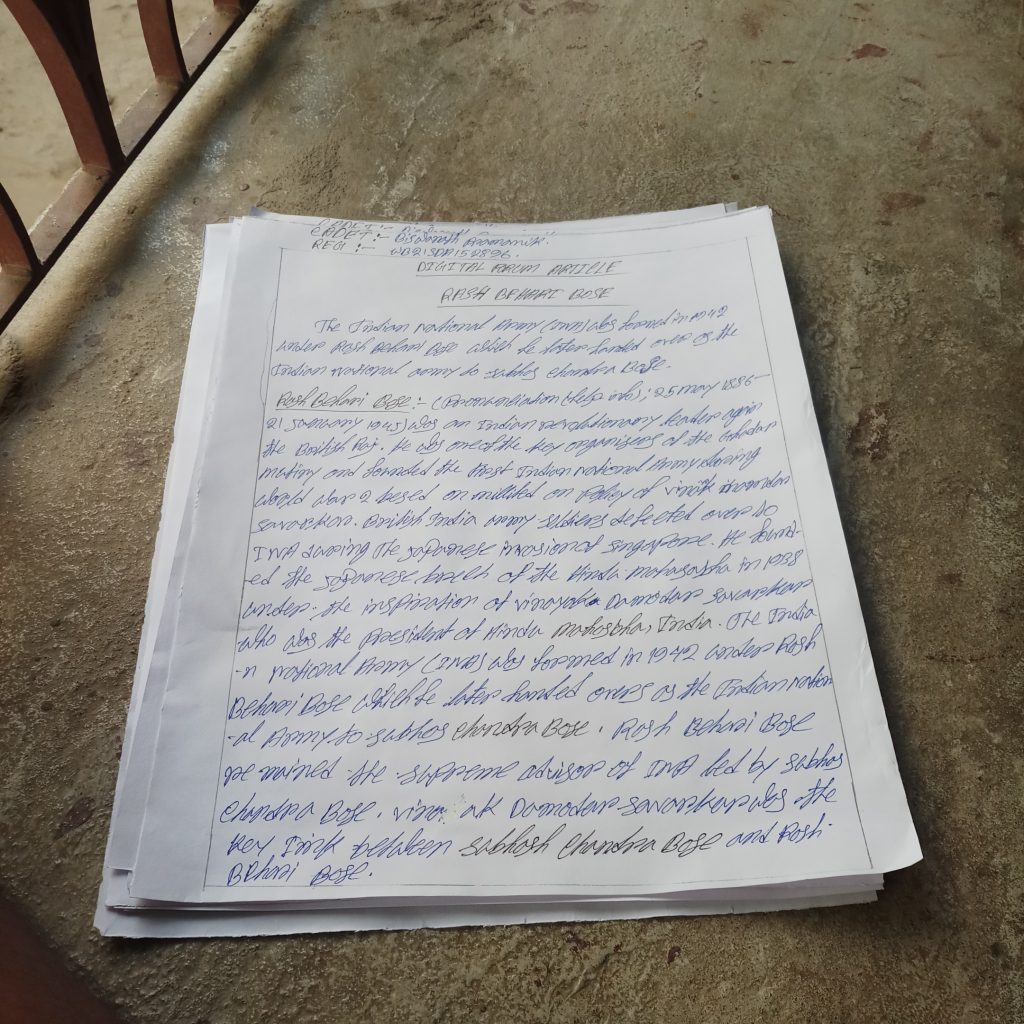 CADET :-
CADET :- Biswanath Pramanik.
REGI :- WB21SDA152896.
DIGITAL FORUM ARTICLE
RASH BEHARI BOSE
The Indian National Army (INA) was formed in 1942
under Rash Behari Bose which he later handed over as the
Indian National army to subhas chandra Bose.
Rash Behari Bose :- (Pronounciation (help info) ; 25 may 1886-
21 January 1945) was an Indian revolutionary leader again
the British Raj. He was one of the key organisers of the Ghadar
mutiny and founded the First Indian National Army during
World War 2 based on on Policy of
savarkar. British India army soldiers defected over to
INA during the Japanese invasion of singapore. He found-
ed the Japanese brech of the Hindu mahasabha in 1938
under the inspiration of vinayaka Damodar savarkar
who was the president of Hindu mahasbha, India. The India
-n National Army (INA) was formed in 1942 under Rash
Behari Bose which he later handed overs as the Indian Nation
-al Army to subhas chandra Bose. Rash Behari Bose
remained the supreme advisor of INA led by subhas
chandra Bose. vina ak Damodar savarkar was the
key link between subhash chandra Bose and Rash
Behari Bose.